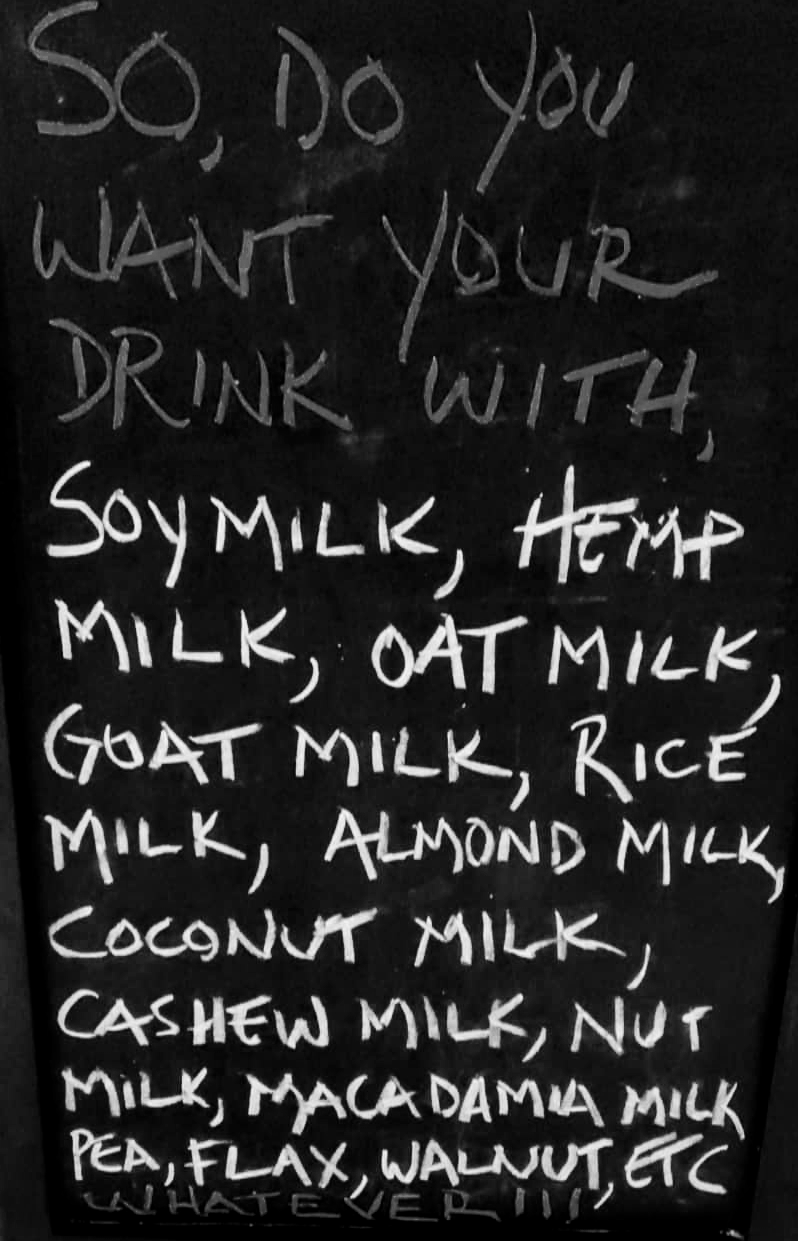 SO, DO YOU
WANT YOUR
DRINK WITH,
SOY MILK, HEMP
MILK, OAT MILK,
GOAT MILK, RICE
MILK, ALMOND MILK,
COCONUT MILK,
CASHEW MILK, NUT
MILK, MACADAMIA MILK
PEA, FLAX, WALNUT, ETC
WHATEVER!!!